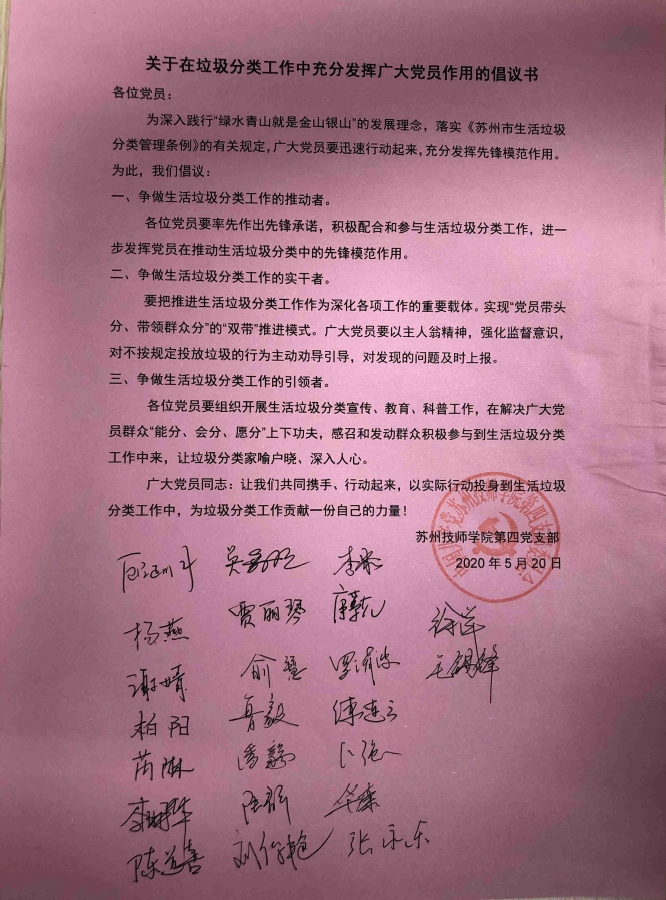 关于在垃圾分类工作中充分发挥广大党员作用的倡议书
各位党员：
为深入践行“绿水青山就是金山银山”的发展理念，落实《苏州市生活垃圾
分类管理条例》的有关规定，广大党员要迅速行动起来，充分发挥先锋模范作用。
为此，我们倡议：
一、争做生活垃圾分类工作的推动者。
各位党员要率先作出先锋承诺，积极配合和参与生活垃圾分类工作，进一
步发挥党员在推动生活垃圾分类中的先锋模范作用。
二、争做生活垃圾分类工作的实干者。
要把推进生活垃圾分类工作作为深化各项工作的重要载体。实现“党员带头
分、带领群众分”的“双带”推进模式。广大党员要以主人翁精神，强化监督意识，
对不按规定投放垃圾的行为主动劝导引导，对发现的问题及时上报。
三、争做生活垃圾分类工作的引领者。
各位党员要组织开展生活垃圾分类宣传、教育、科普工作，在解决广大党
员群众“能分、会分、愿分”上下功夫，感召和发动群众积极参与到生活垃圾分类
工作中来，让垃圾分类家喻户晓、深入人心。
广大党员同志：让我们共同携手、行动起来，以实际行动投身到生活垃圾
分类工作中，为垃圾分类工作贡献一份自己的力量！
苏州技师学院第四党支部
2020年5月20日
杨燕 贾丽琴
谢婧
柏阳 肖毅
陈道喜 张永乐